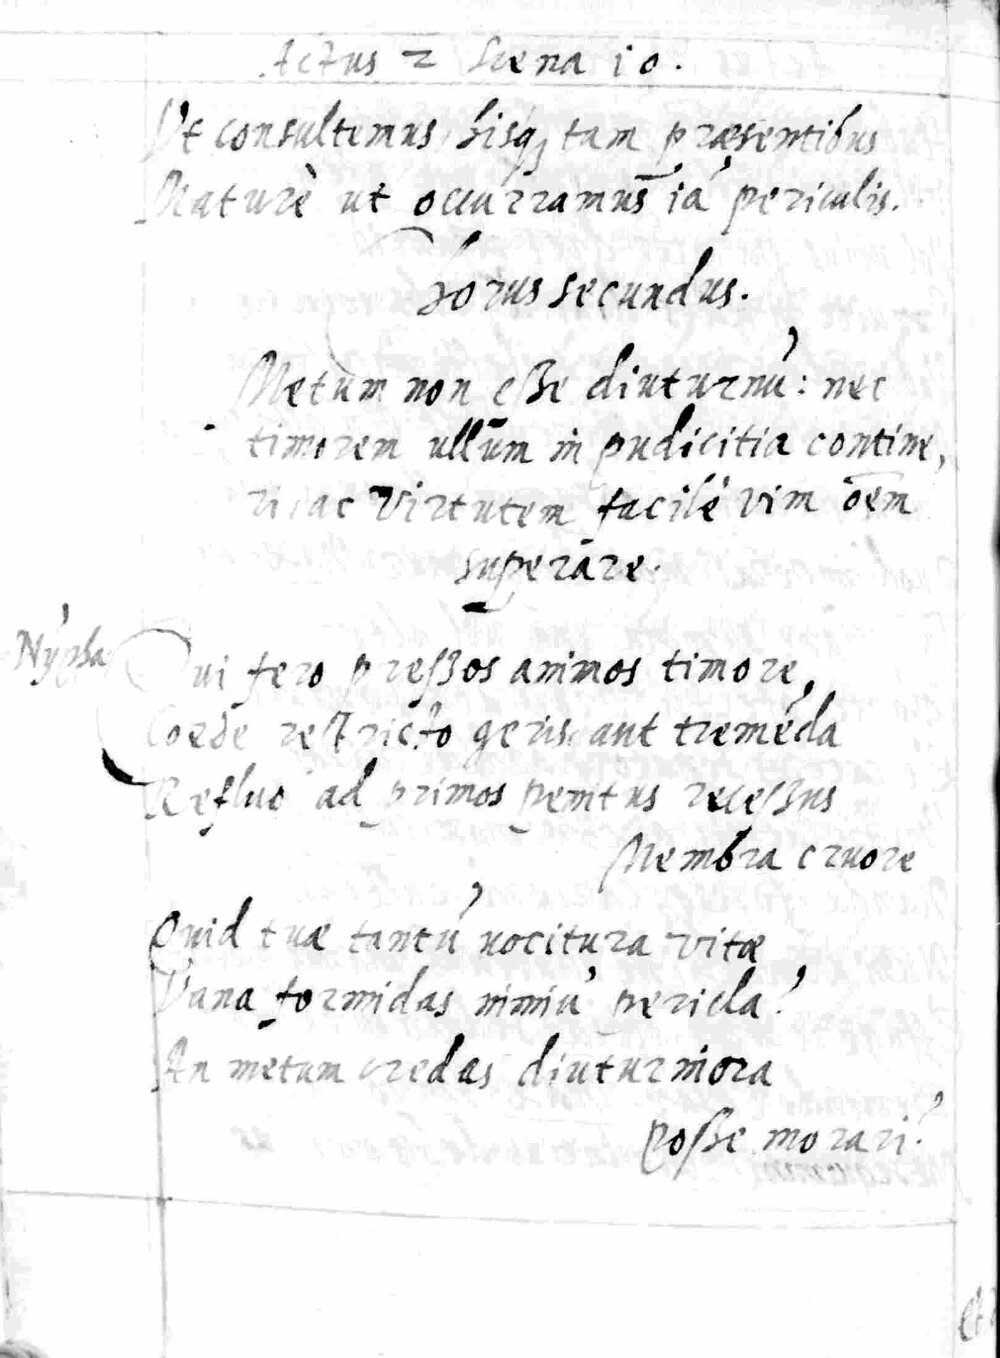 Actus 2 Scena 10.
Vt consultemus, hisq; tam præsentibus
Maturè ut occurramus iã periculis.
Chorus secundus.
Metum non eſse diuturnũ: nec
timorem ullum in pudicitia contine,
ri, ac virtutem facilè vim õem
superare.
Nỹpha
Qui fero preſsos animos timore,
Corde reſtricto geris, aut tremẽda
Refluo ad primos penitus receſsus
Membra cruore
Quid tuæ tantũ nocitura vitæ
Vana formidas nimiũ pericla?
An metum credas diuturniora
poſse morari?